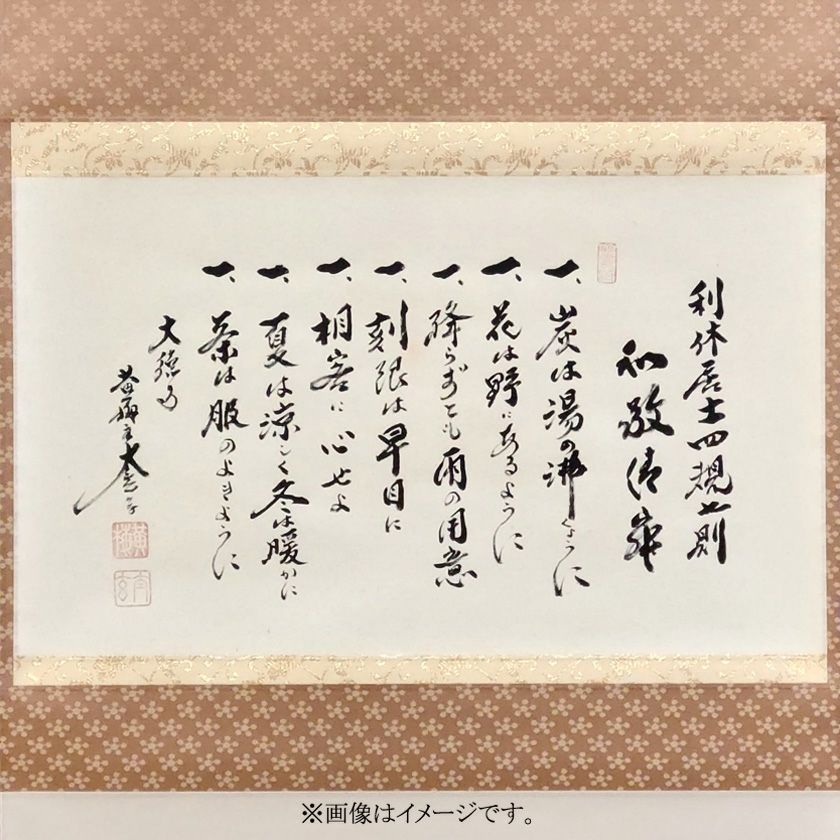 利休居士四規七則
和敬清寂
一、炭は湯の沸くように
一、花は野にあるように
一、降らずとも雨の用意
一、刻限は早目に
一、相客に心せよ
一、夏は涼しく冬は暖かに
一、茶は服のよきように
大徳
黄梅
※画像はイメージです。